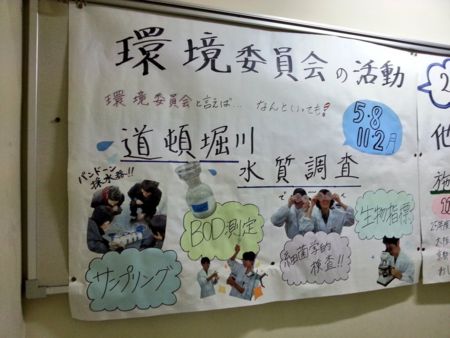 環境委員会の活動
環境委員会と言えば… なんといっても!
5・8
11・2月
道頓堀川
水質調査
バンドーン
採水器!!
BOD測定
で
す
細菌学的
検査!!
生物指標
サンプリング
2
他
施